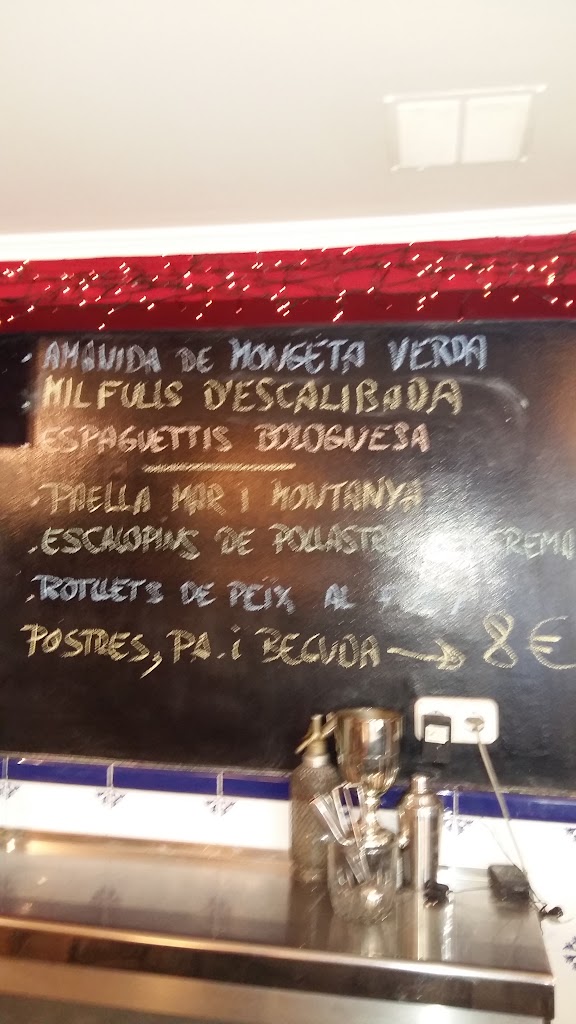 · AMANIDA DE MONGETA VERDA
· MILFULLS D'ESCALIBADA
· ESPAGUETTIS BOLOGNESA
· PAELLA MAR I MONTANYA
· ESCALOPINS DE POLLASTRE CREMA
· ROTLLETS DE PEIX AL
POSTRES, PA. i BEGUDA → 8€